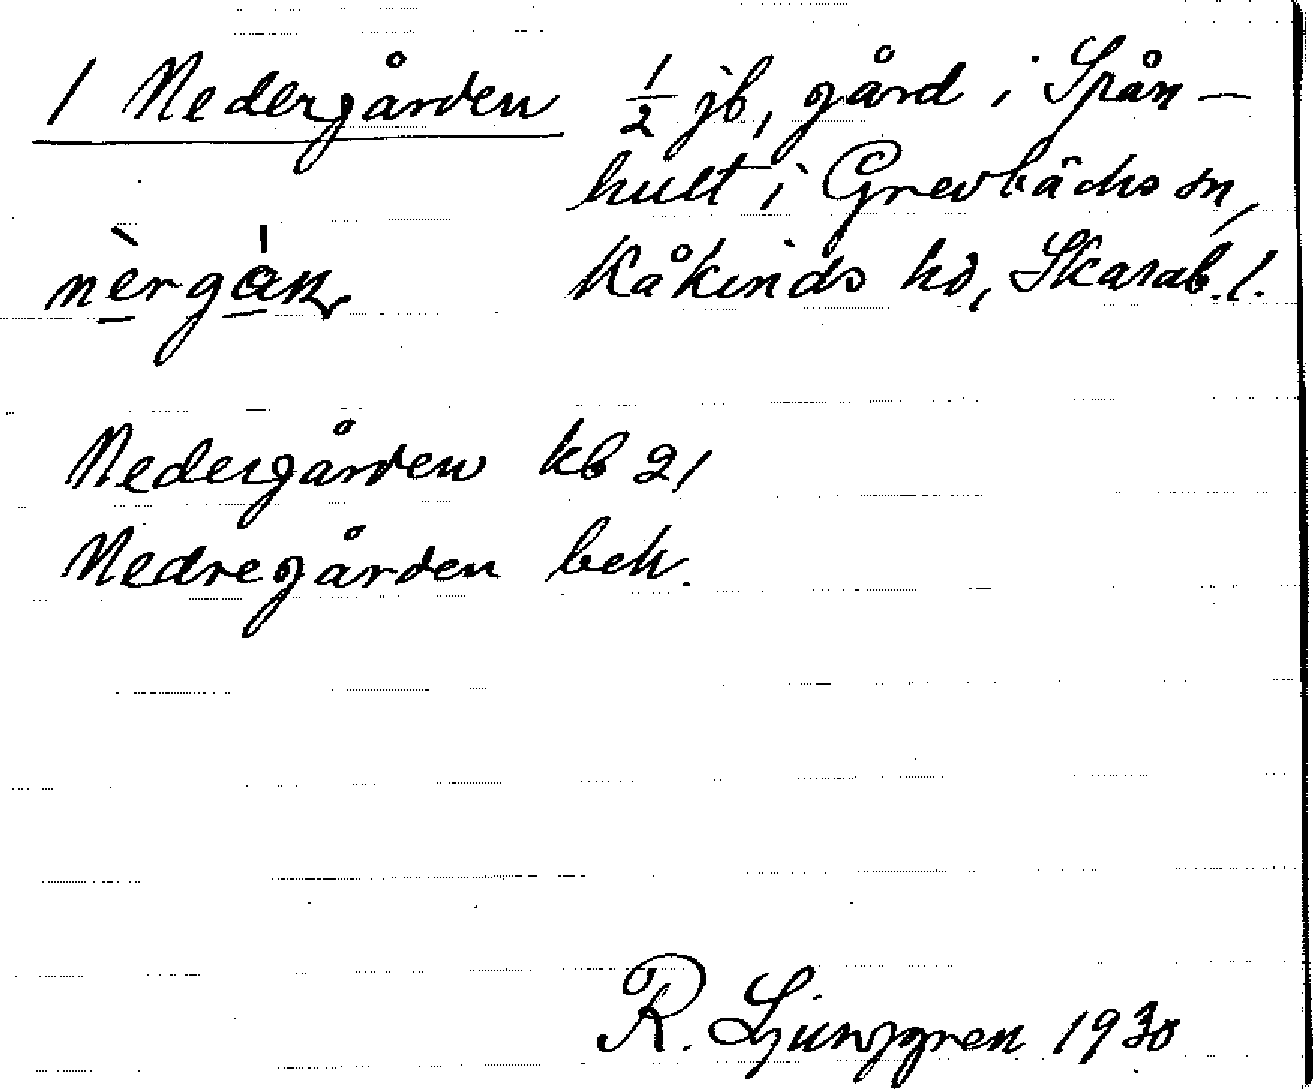 1 Nedergården 1/2 jb, gård i Spån-
hult i Grevbäcks sn,
nèrgán Kåkinds hd, Skarab. l.
Nedergården kb 21
Nedregården bek.
R. Ljunggren 1930